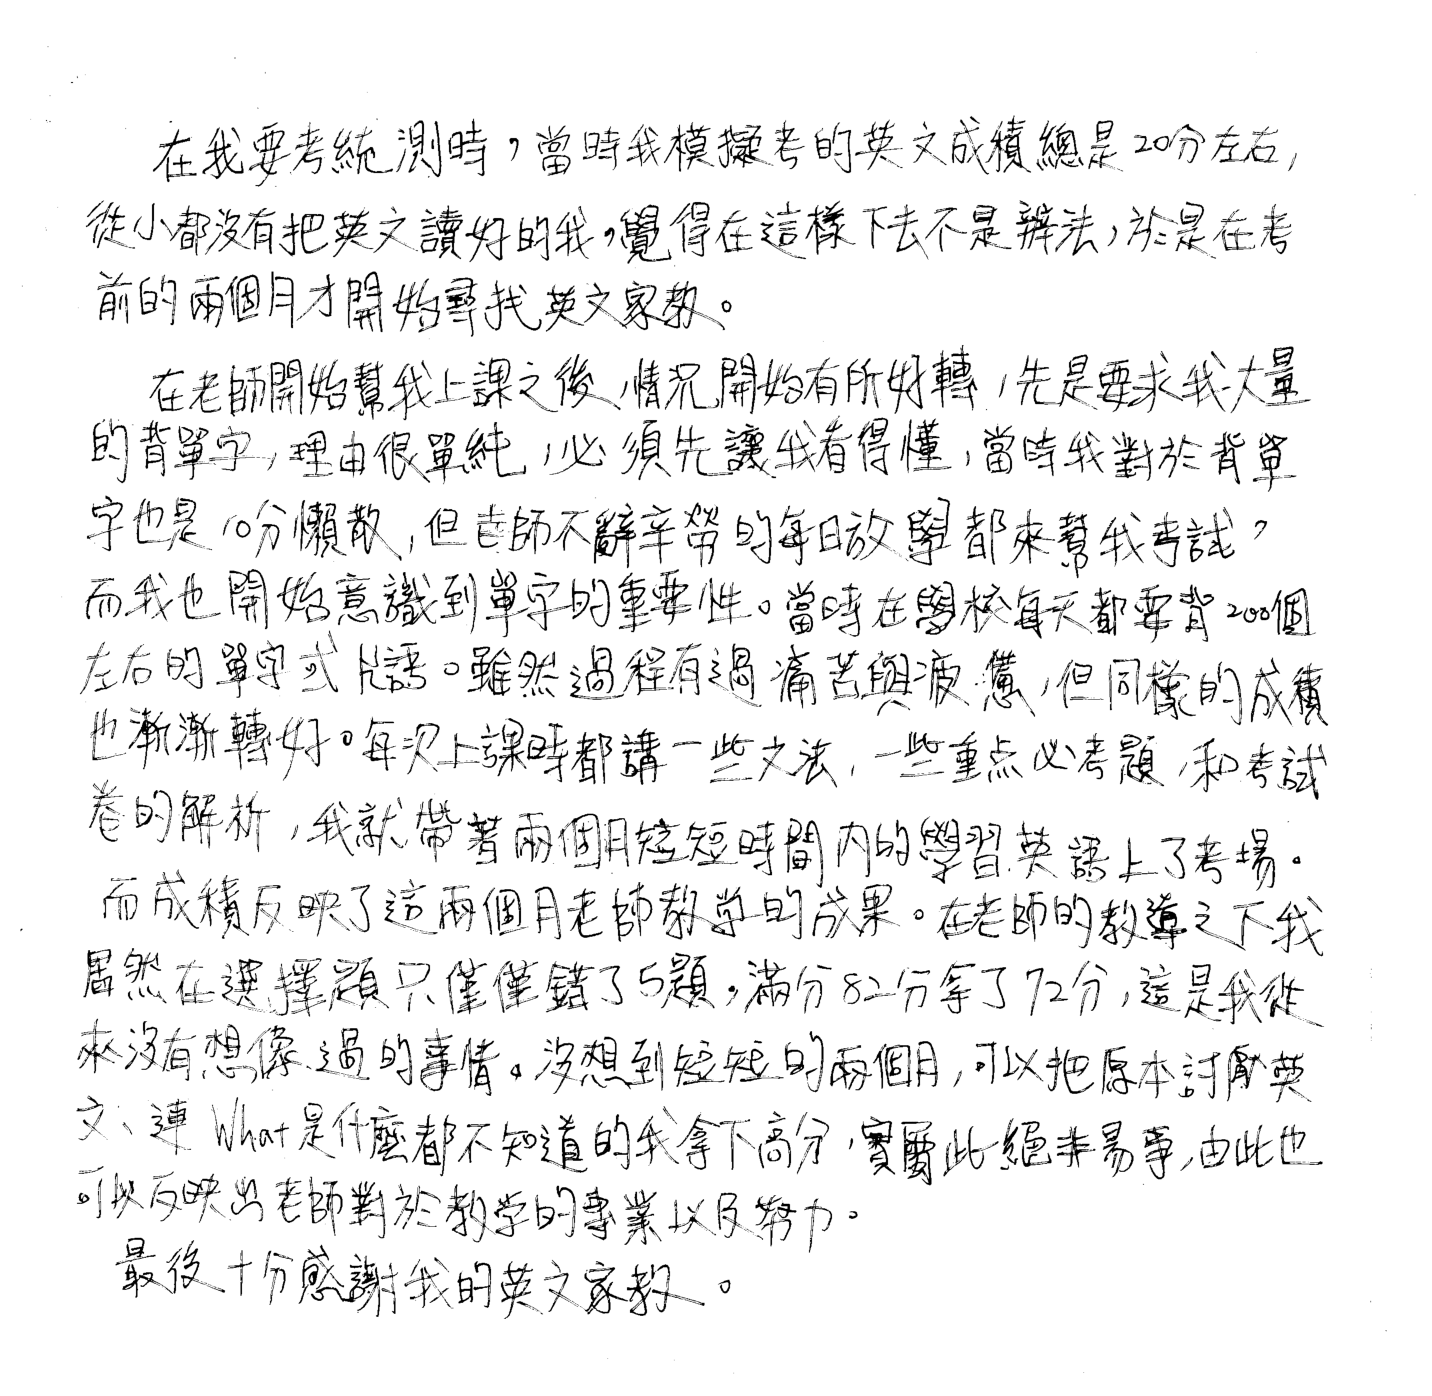 在我要考統測時，當時我模擬考的英文成績總是20分左右，
從小都沒有把英文讀好的我，覺得在這樣下去不是辦法，於是在考
前的兩個月才開始尋找英文家教。
在老師開始幫我上課之後，情況開始有所好轉，先是要求我大量
的背單字，理由很單純，必須先讓我看得懂，當時我對於背單
字也是10分懶散，但老師不辭辛勞的每日放學都來幫我考試，
而我也開始意識到單字的重要性。當時在學校每天都要背200個
左右的單字或片語。雖然過程有過痛苦與疲憊，但同樣的成績
也漸漸轉好。每次上課時都講一些文法，一些重点必考題，和考試
卷的解析，我就帶著兩個月短短時間內的學習英語上了考場。
而成績反映了這兩個月老師教学的成果。在老師的教導之下我
居然在選擇題只僅僅錯了5題，滿分82分拿了72分，這是我從
來沒有想像過的事情。沒想到短短的兩個月，可以把原本討厭英
文、連What是什麼都不知道的我拿下高分，實屬此絕非易事，由此也
可以反映出老師對於教学的專業以及努力。
最後十分感謝我的英文家教。